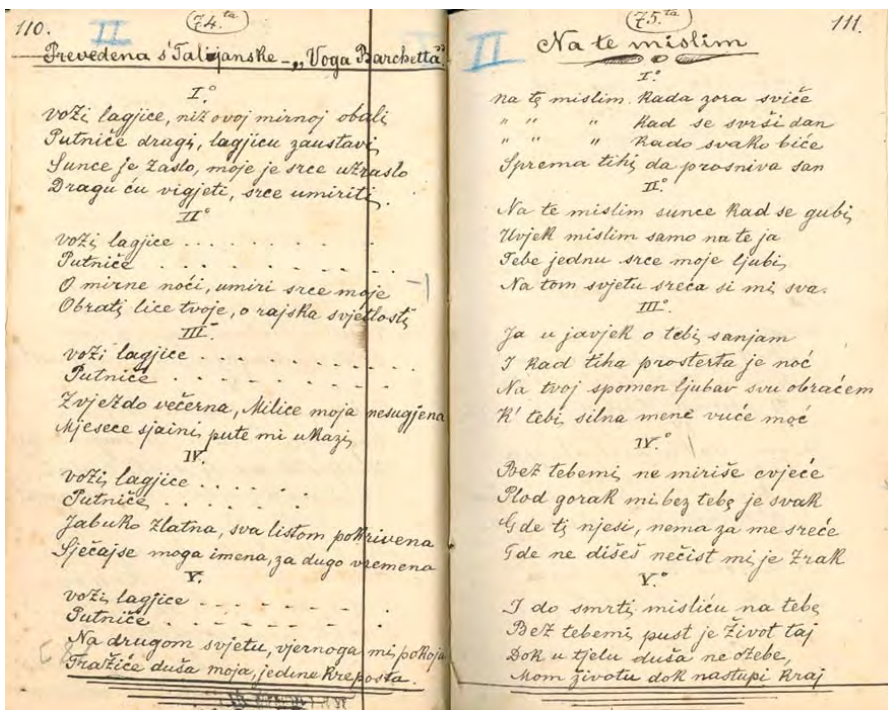 110.
II
74.ta
Prevedena s'Talijanske - „Voga Barchetta"
I.°
voži lagjice, niz ovoj mirnoj obali
Putniče dragi, lagjicu zaustavi
Sunce je zaslo, moje je srce uzraslo
Dragu ću vigjeti, srce umiriti.
II°
voži lagjice . . . . . . . . .
Putniče . . . . . . . . . . .
O mirne noći, umiri srce moje
Obrati lice tvoje, o rajska svjetlosti
III.
voži lagjice . . . . . . . . .
Putniče . . . . . . . . . .
Zvjezdo večerna, Milice moja nesugjena
Mjesece sjaini, pute mi ukaži
IV.
voži lagjice . . . . . .
Putniče . . . . . . .
Jabuko zlatna, sva listom pokrivena
Sječajse moga imena, za dugo vremena
V.
voži lagjice . . . . . . . .
Putniče . . . . . . . . .
Na drugom svjetu, vjernoga mi pokoja
Tražiće duša moja, jedine kreposta.
111.
II
75.ta
Na te mislim
I.°
na te mislim. Kada zora sviče
" " " Kad se svrši dan
" " " Kado svako biće
Sprema tihi da prosniva san
II.°
Na te mislim sunce kad se gubi
Uvjek mislim samo na te ja
Tebe jednu srce moje ljubi
Na tom svjetu sreća si mi sva.
III.°
Ja u javjek o tebi sanjam
I kad tiha prosterta je noć
Na tvoj spomen ljubav svu obraćem
K' tebi silna mene vuće moć
IV.°
Bež tebemi ne miriše cvjeće
Plod gorak mi bez tebe je svak
Gde ti njesi, nema za me sreće
Gde ne dišeš nečist mi je zrak
V.°
I do smrti misliću na tebe
Bež tebemi pust je život taj
Dok u tjelu duša ne ožebe,
Mom životu dok nastupi kraj